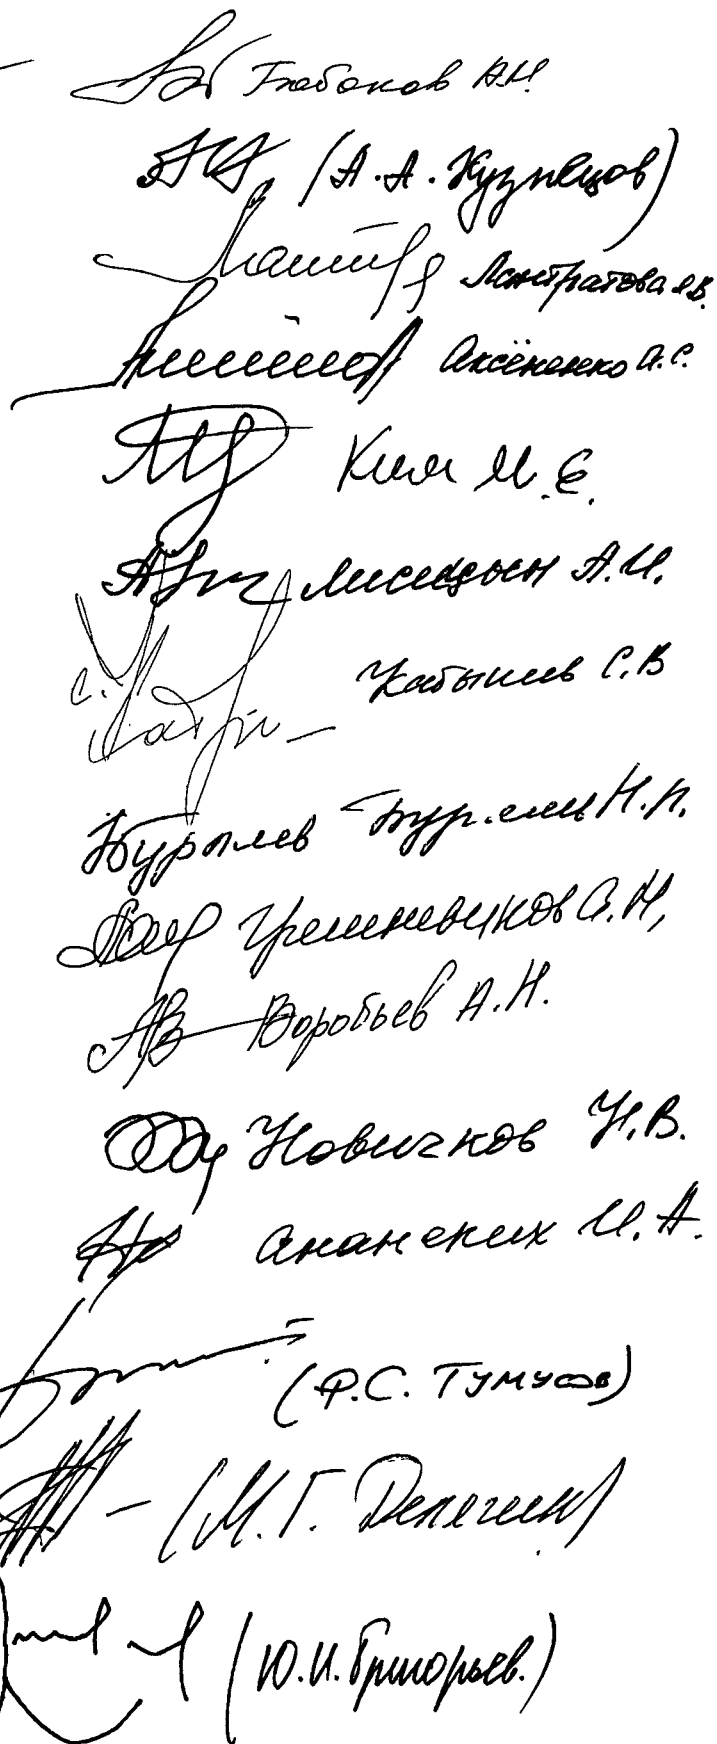 Бабаков А.М.
(А.А. Кузнецов)
Лантратова Я.В.
Аксёненко А.С.
Ким М.Е.
Лисицын А.И.
Кабышев С.В
Бурляев Н.П.
Грешневиков А.Н,
Воробьев А.Н.
Новичков Н.В.
Ананских И.А.
(Ф.С. Тумусов)
(М.Г. Делягин)
(Ю.И. Григорьев.)